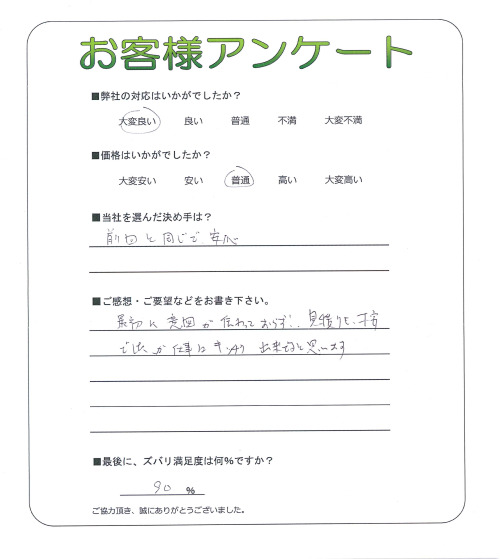 お客様アンケート
■弊社の対応はいかがでしたか？
大変良い 良い 普通 不満 大変不満
■価格はいかがでしたか？
大変安い 安い 普通 高い 大変高い
■当社を選んだ決め手は？
前回と同じで、安心
■ご感想・ご要望などをお書き下さい。
最初に意図が伝わっておらず、見積りも
が仕事はキッチリ出来たと思います
■最後に、ズバリ満足度は何%ですか？
90 %
ご協力頂き、誠にありがとうございました。